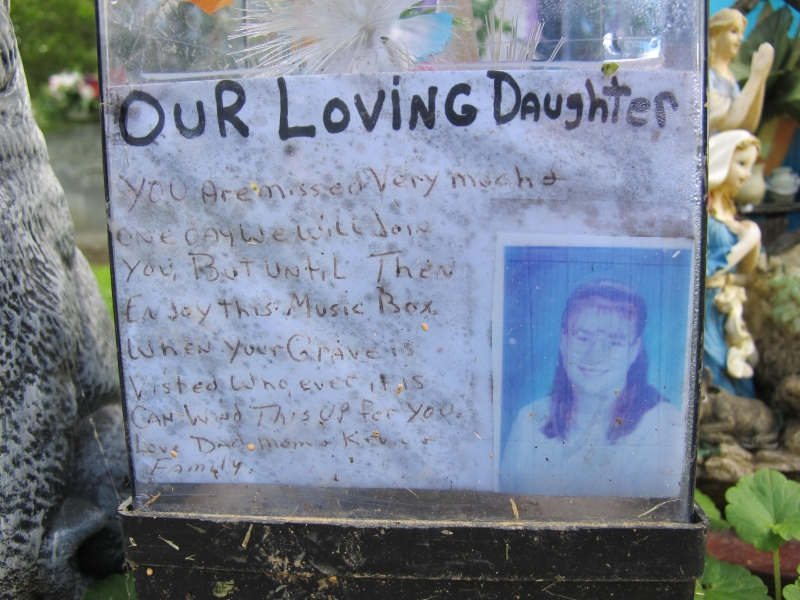 OUR LOVING Daughter
YOU Are missed Very much &
ONE DAY WE WILL JOIN
YOU, BUT UNTIL Then
ENJOY this Music Box.
When Your Grave is
Visted Who, ever it is
CAN Wind This UP for YOU.
Love Dad, mom &
Family.